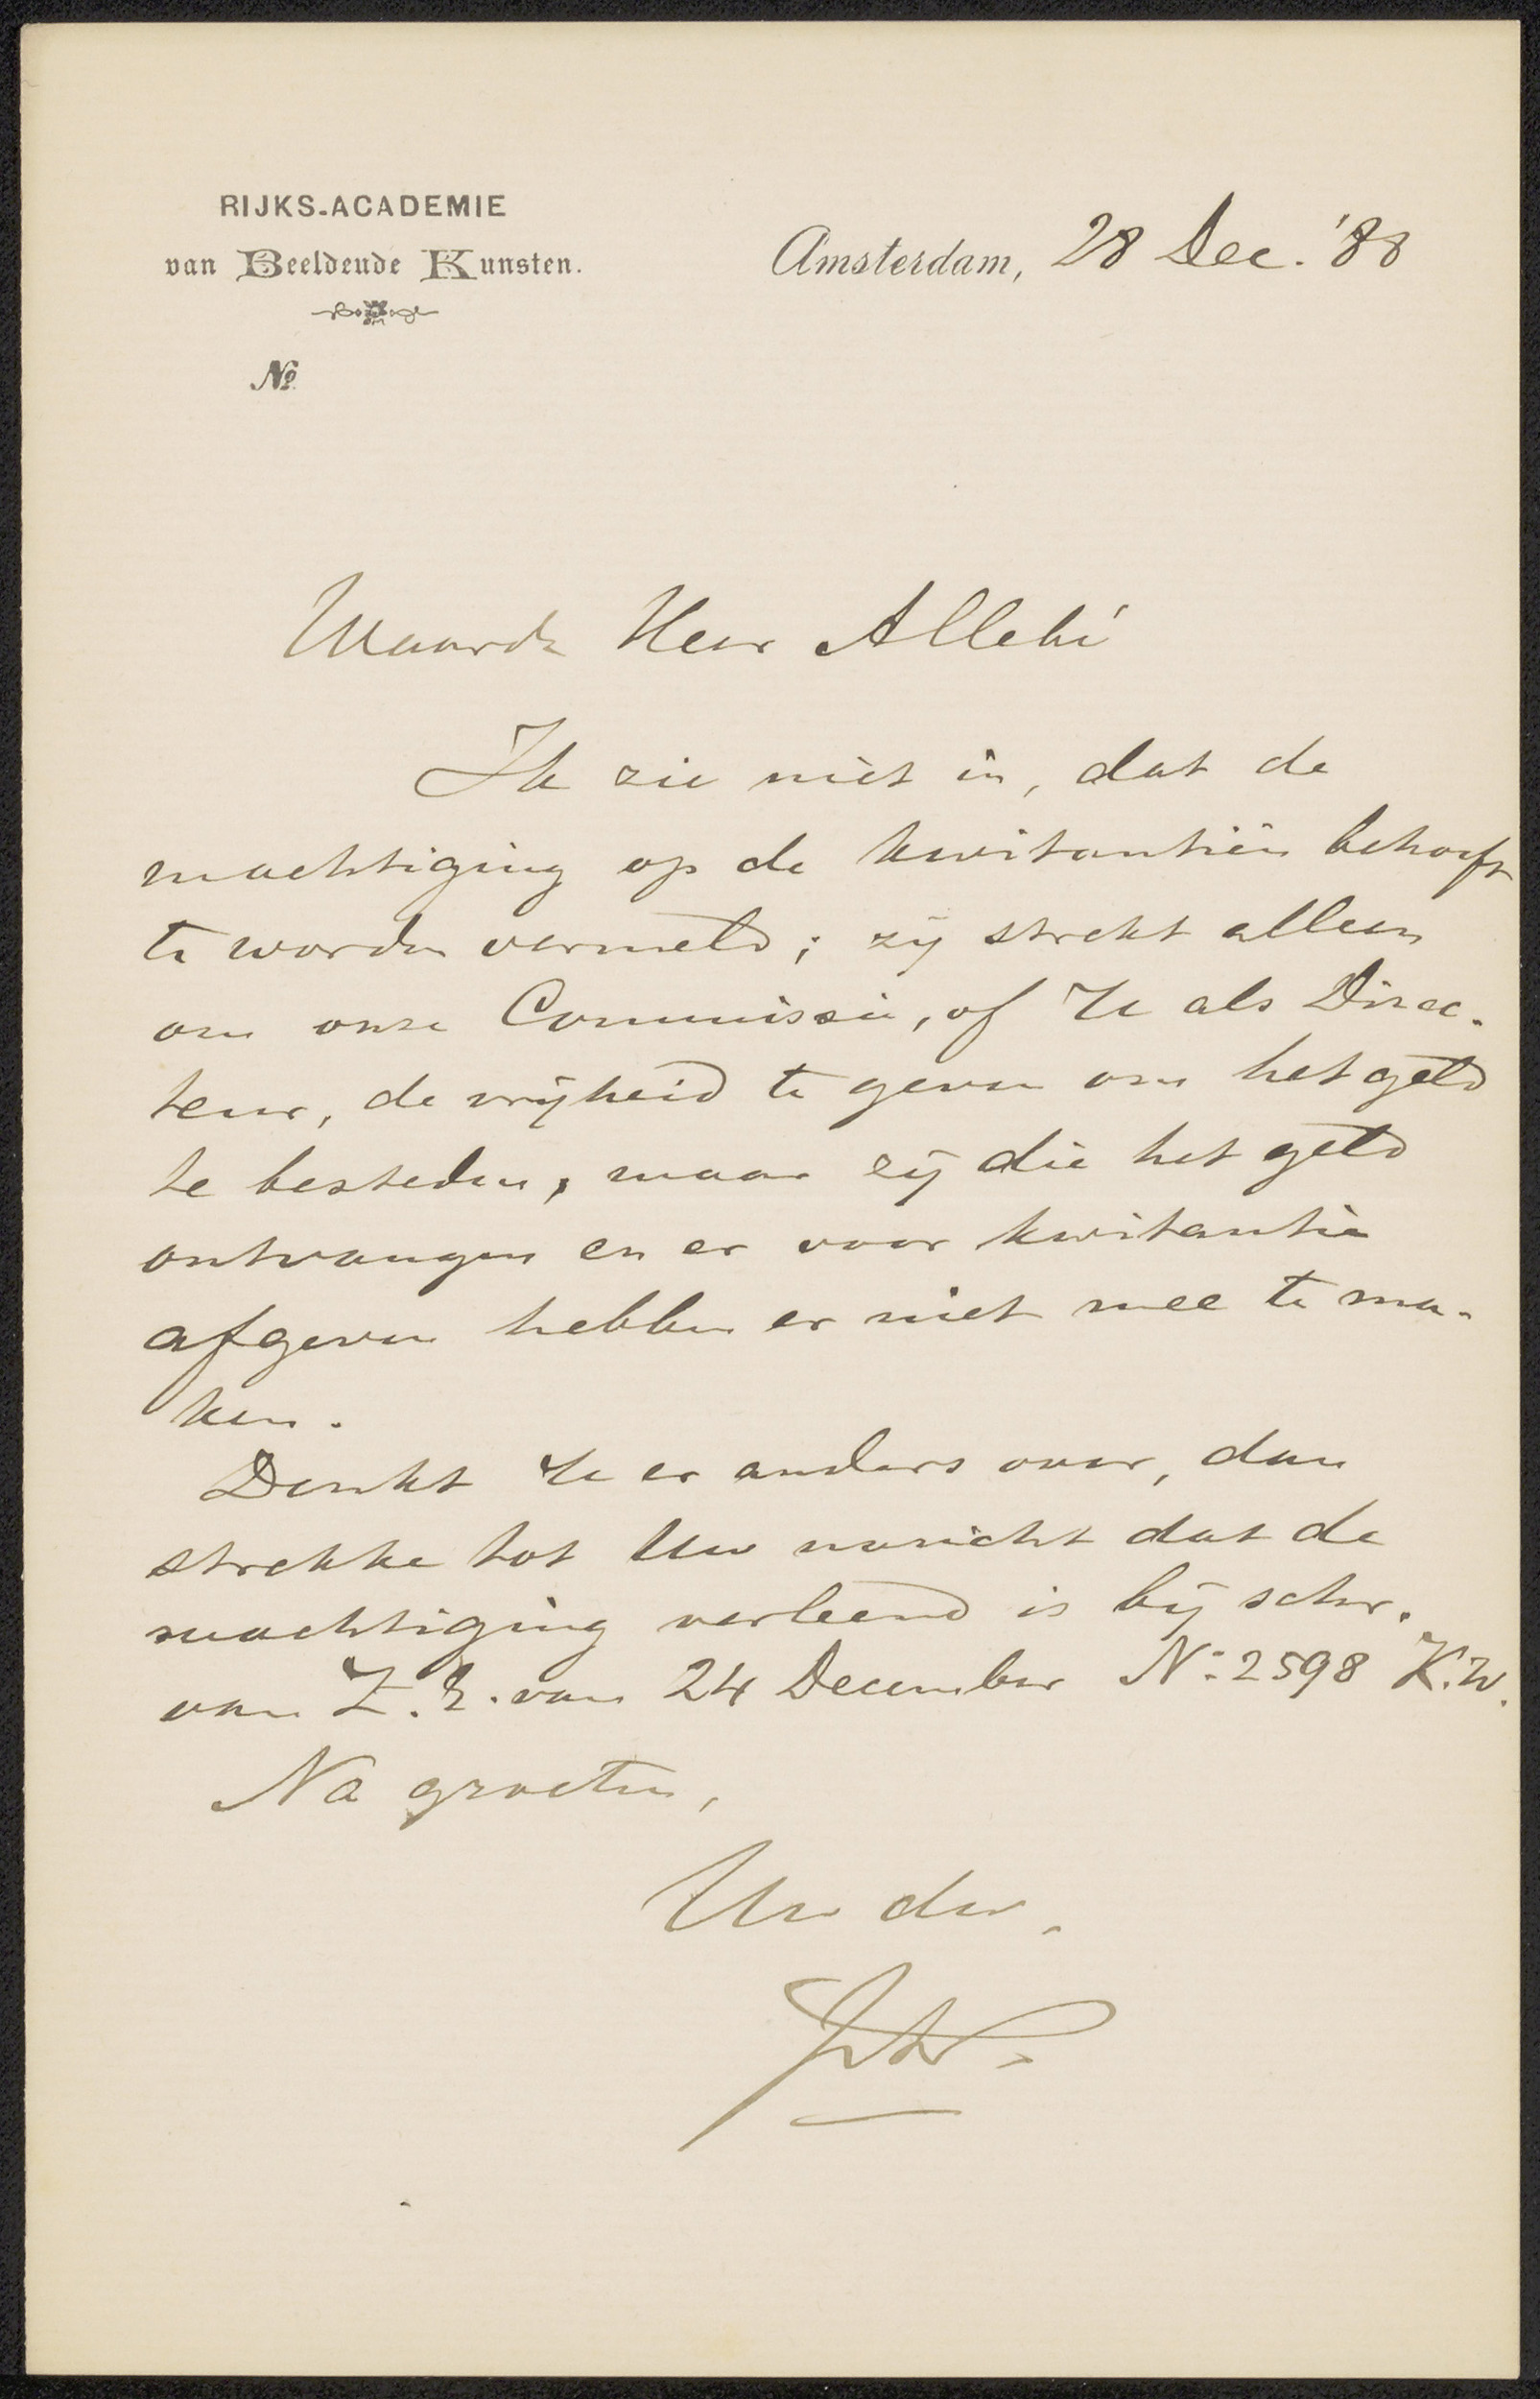 RIJKS-ACADEMIE
van Beeldende Kunsten.
Amsterdam, 28 Dec. '88
No.
Waarde Heer Allebé
Ik zie niet in, dat de
machtiging op de kwitantiën behoeft
te worden vermeld; zij strekt alleen
om onze Commissie, of U als Direc-
teur, de vrijheid te geven om het geld
te besteden, maar zij die het geld
ontvangen en er voor kwitantie
afgeven hebben er niet mee te ma-
ken.
Denkt U er anders over, dan
strekke tot Uw naricht dat de
machtiging verleend is bij schr.
van Z.E. van 24 December No. 2598 K.W.
Na groeten,
Uw dw.